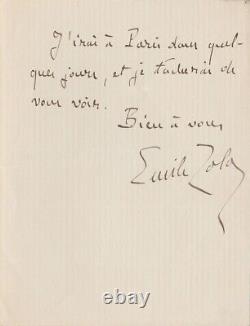 J'irai à Paris dans quel-
ques jours, et je tâcherai de
vous voir.
Bien à vous
Emile Zola
© ebay